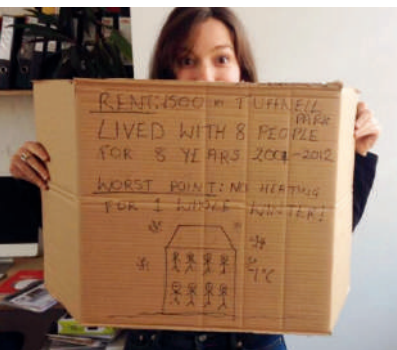 RENT: £500 in TUFFNELL
PARK
LIVED WITH 8 PEOPLE
FOR 8 YEARS 2004-2012
WORST POINT: NO HEATING
FOR 1 WHOLE WINTER!
-1°C